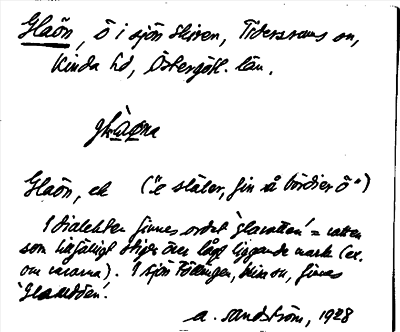 Glaön, ö i sjön Skiren, Tidersrums sn,
Kinda hd, Östergötl. län.
Glaön, ek ("e släter, fin å bördier ö")
I dialekten finnes ordet 'glavatten' = vatten
som tillfälligt stiger över lågt liggande mark (ex.
om vårarna). I sjön Föllingen, sn, finnes
A. Sandström, 1928